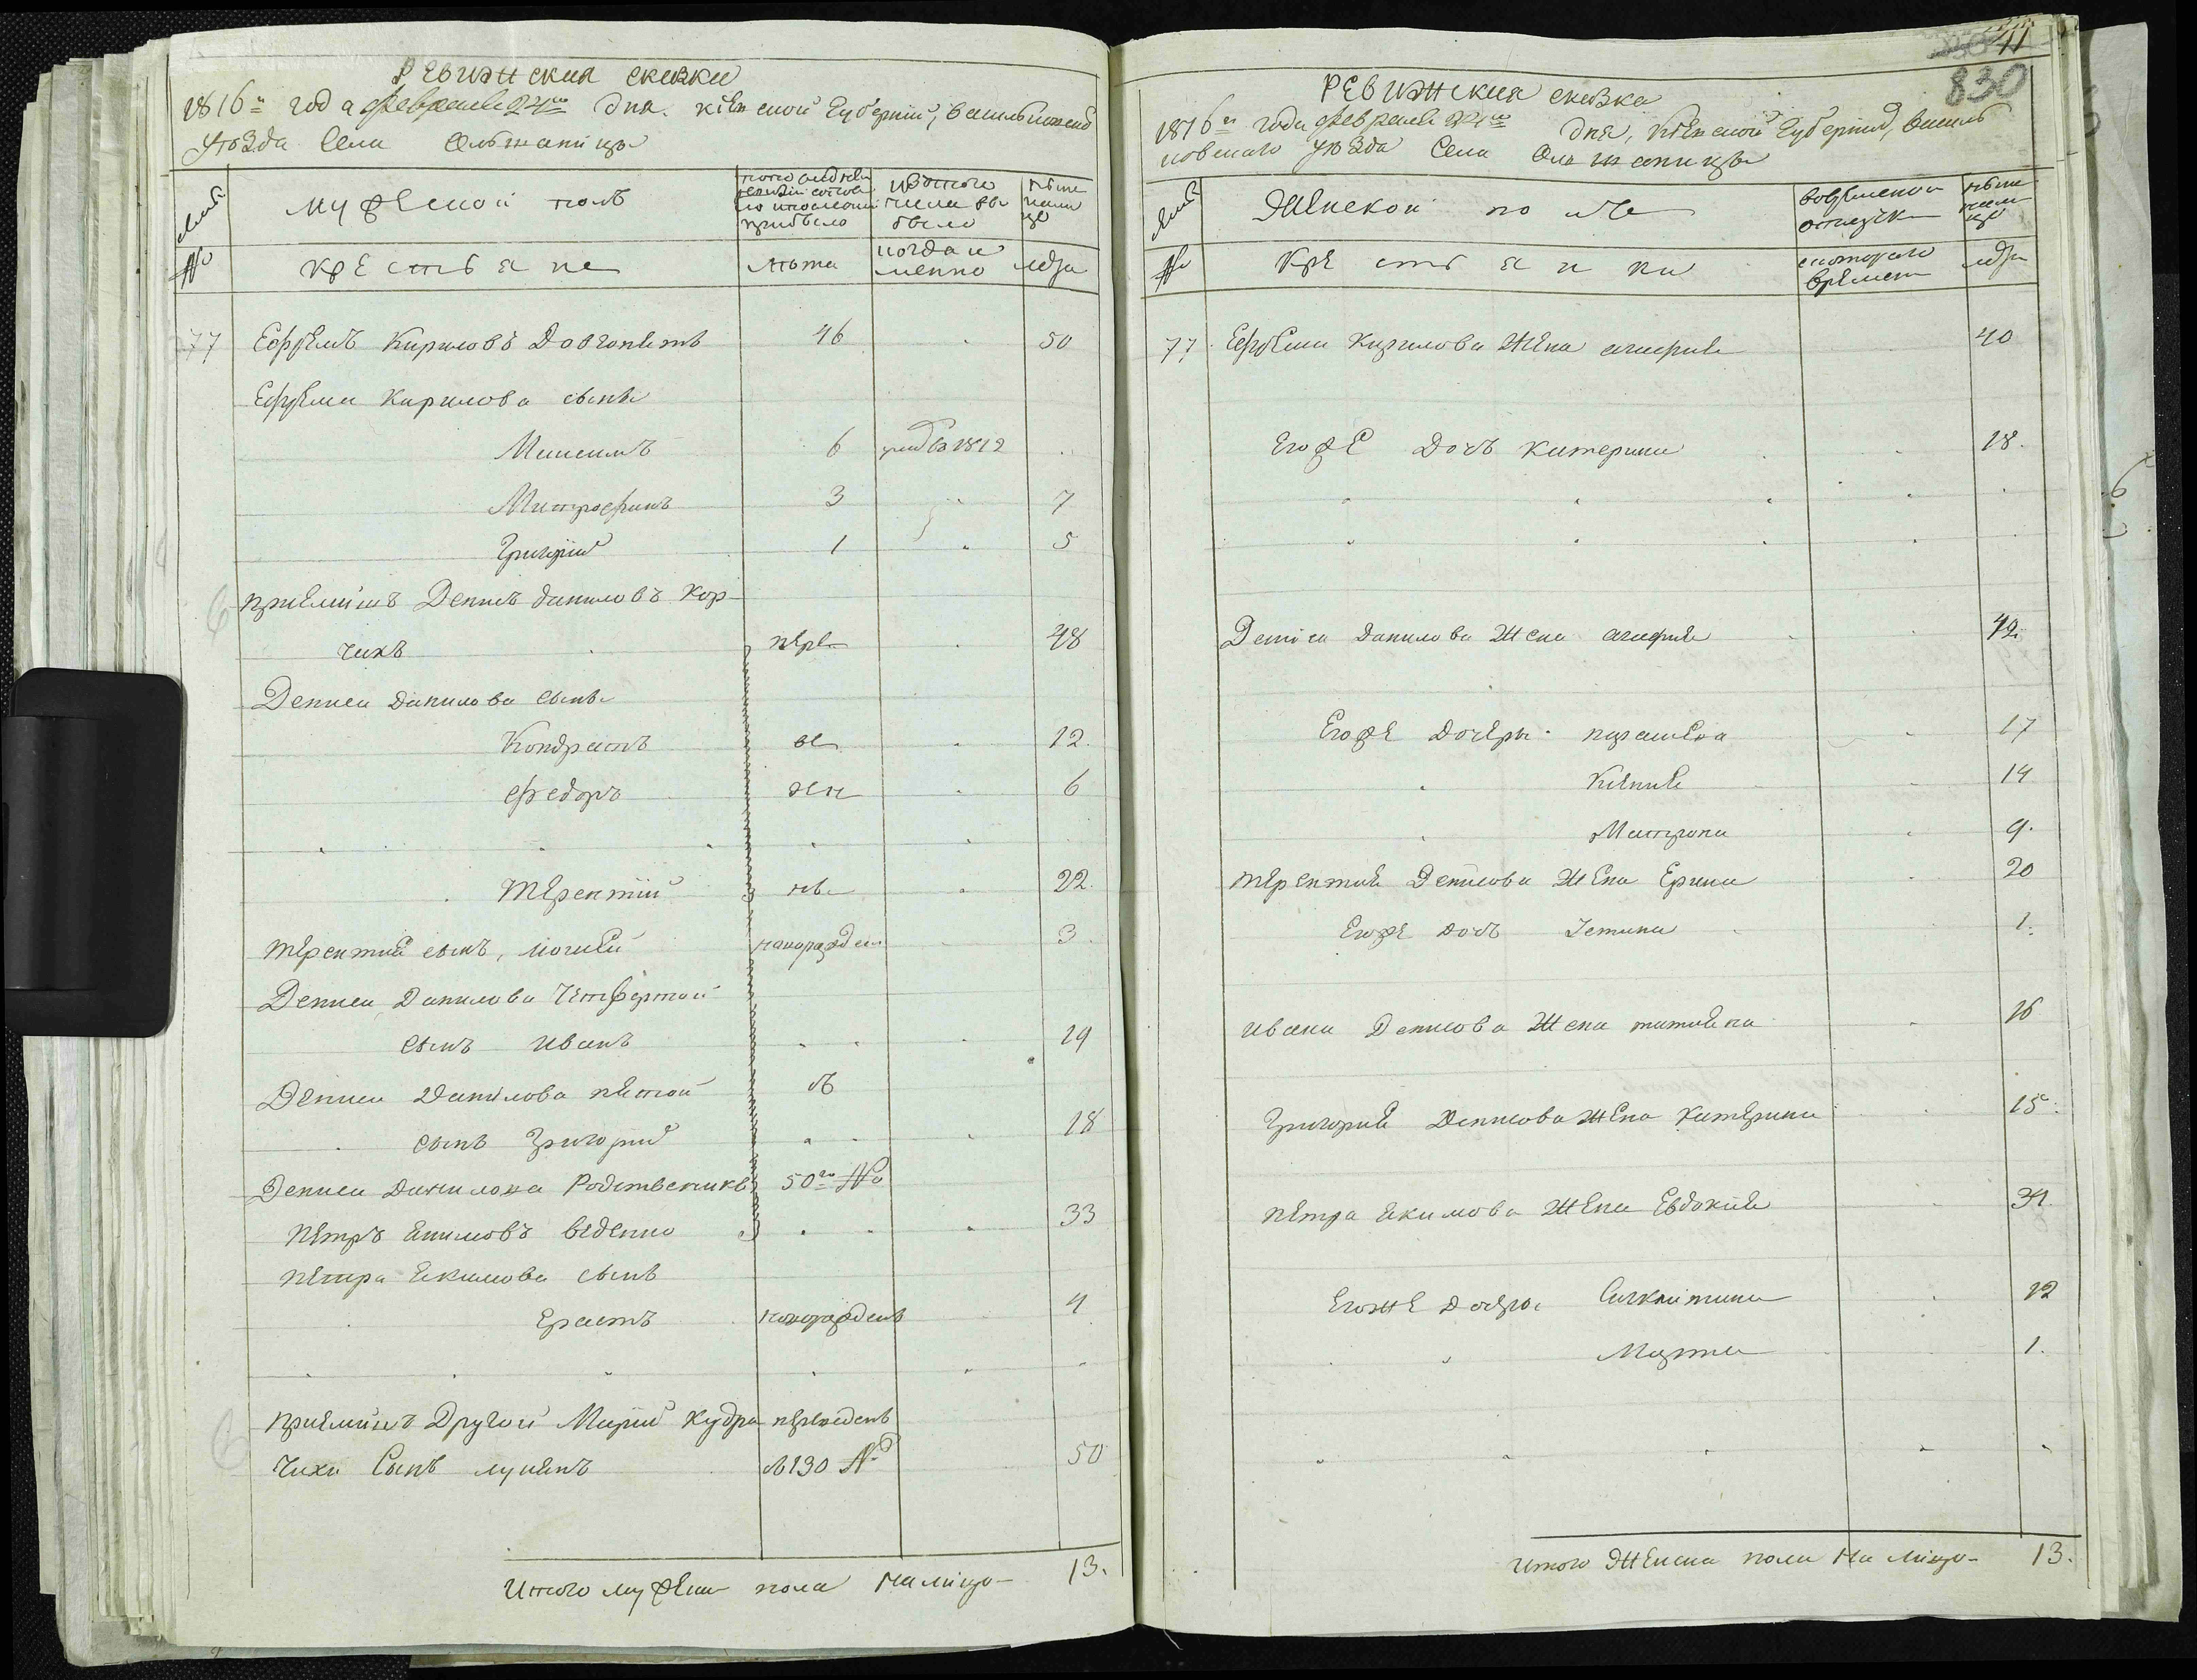 РЕВИЖСКАЯ СКАЗКА
1816го года февраля 24го дня. Кіевской Губерніи, Васильковскаго
уѣзда Села Ольшаницы
Семьи
мужеской полъ
по последней ревизіи состояло и после оной прибыло
изъ того числа выбыло
ныне на лицо
№
крестьяне
лѣта
когда именно
лѣта
77 Ефремъ Кириловъ Довгопятъ 46 50
Ефрема Кирилова сыны
Максимъ 6 умеръ 1812
Митрофанъ 3 7
Григорій 1 5
Приемышъ Денисъ Даниловъ Кор-
чакъ 48
Дениса Данилова сыны
Кондратъ 12
Федоръ 6
Терентій 22
Терентия сынъ, Мокей новорожден 3
Дениса Данилова четвертой
сынъ Иванъ 19
Дениса Данилова пятой
сынъ Григорий 18
Дениса Данилова Родственикъ 50го №
Петръ Якимовъ 33
Петра Якимова сынъ
Ерастъ новорожденъ 4
Приемышъ Другой Марии Кудра-
чихи Сынъ Лукянъ 130 № 50
Итого мужеска пола Налицо 13.
41
830
РЕВИЖСКАЯ сказка
1816го года февраля 24го дня, Кіевской Губерніи, Василь-
ковскаго уѣзда Села Ольшаницы
Семьи
Женской полъ
во временной отлучке
ныне на лицо
№
Крестьянки
с котораго времени
лѣта
77 Ефрема Кирилова Жена Агафия 40
Егоже Дочь Катерина 18.
Дениса Данилова Жена Агафия 42.
Егоже Дочери Прасковя 17
Ксения 14
Матрона 9.
Терентия Денисова Жена Ерина 20
Егоже Дочь 1.
Ивана Денисова Жена Татияна 16
Григория Денисова Жена Катерина 15
Петра Якимова Жена Евдокия 34.
Егоже Дочери 12
Марта 1.
Итого Женска пола На лицо 13.